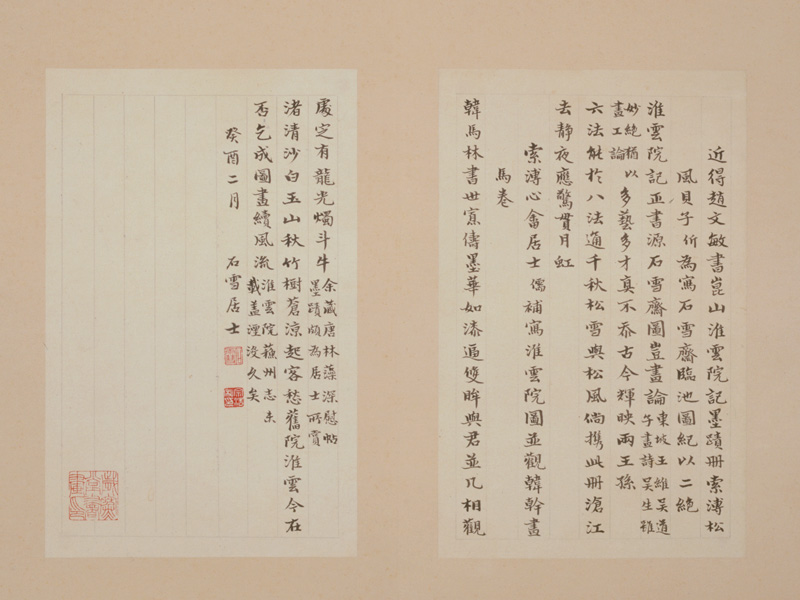 近得趙文敏書崑山淮雲院記墨蹟冊索溥松
風貝子忻為寫石雪齋臨池圖紀以二絶
淮雲院記正書源石雪齋圖豈畫論東坡王維吳道
子畫詩吳生雖
妙絶猶以
畫工論
多藝多才真不忝古今輝映兩王孫
六法能於八法通千秋松雪與松風倘携此冊滄江
去靜夜應驚貫月虹
索溥心畬居士儒補寫淮雲院圖並觀韓幹畫
馬卷
韓馬林書世寡儔墨華如漆逼雙眸與君並几相觀
處定有龍光燭斗牛余藏唐林藻深慰帖
墨蹟頗為居士所賞
渚清沙白玉山秋竹樹蒼涼起客愁舊院淮雲今在
否乞成圖畫續風流淮雲院蘇州志未
載蓋湮沒久矣
癸酉二月 石雪居士